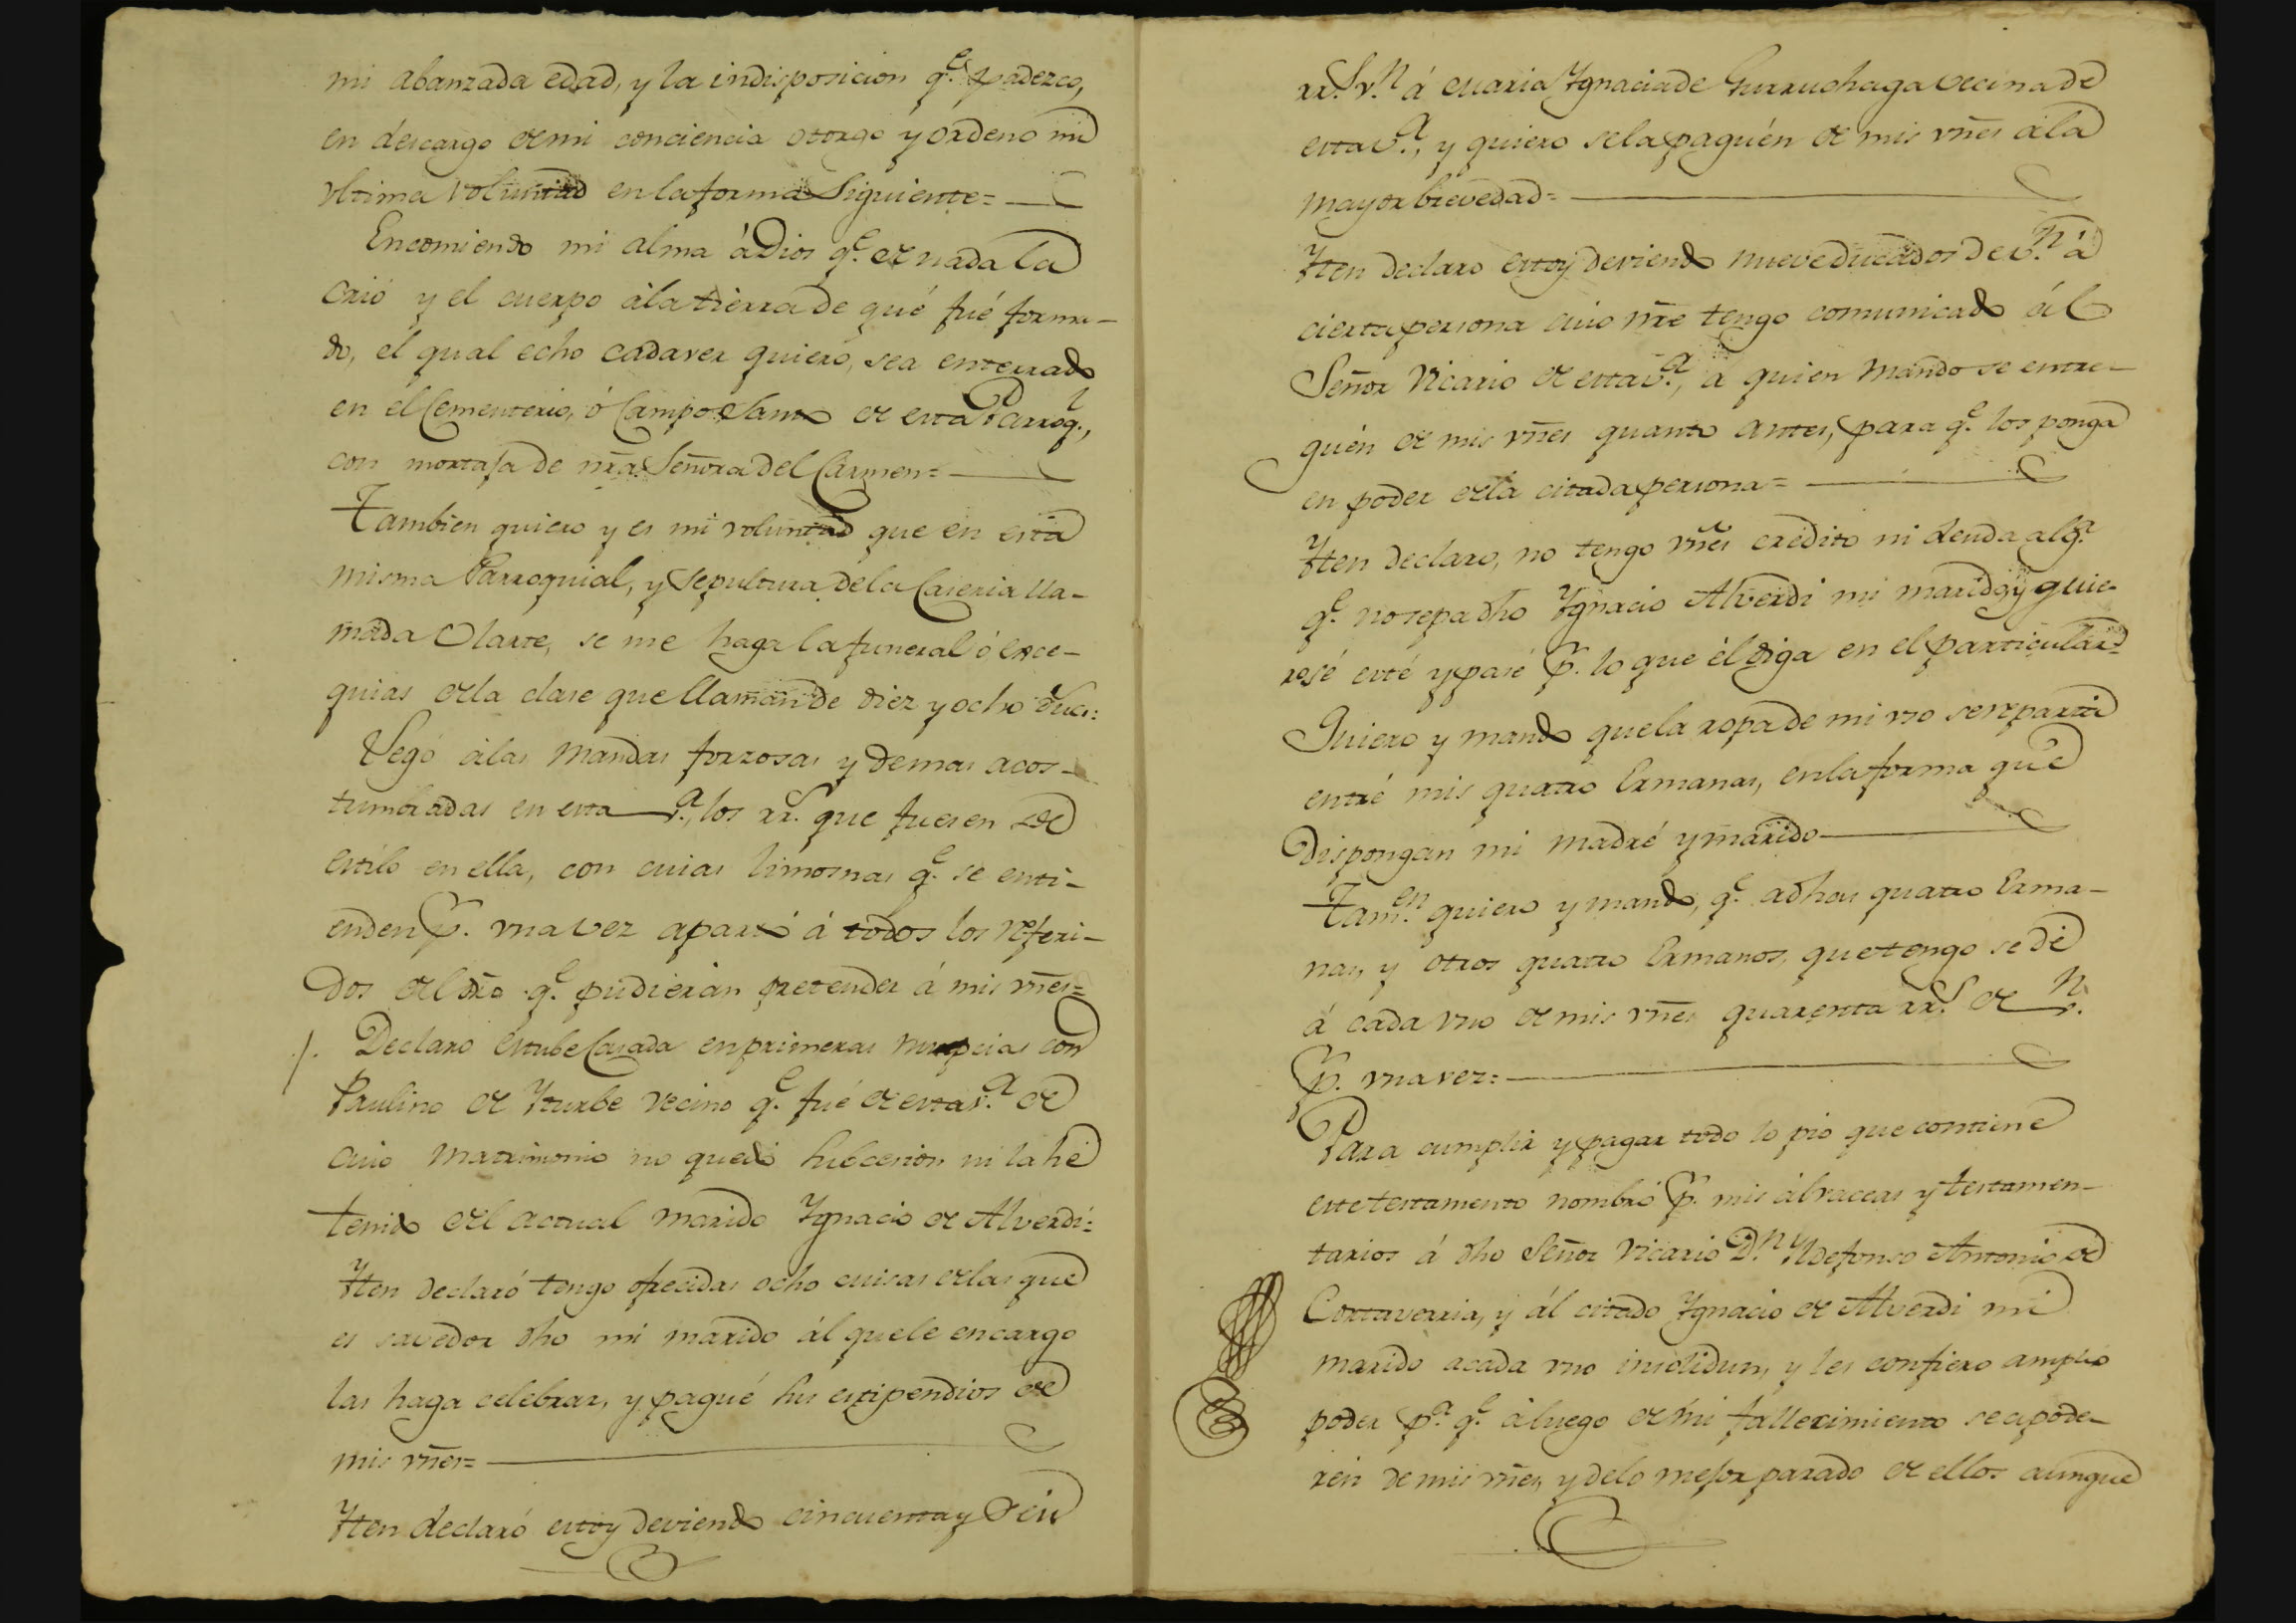 mi abanzada edad, y la indisposicion q.e padezco,
en descargo de mi conciencia otorgo y ordeno mi
vltima voluntad en la forma Siguiente=
Encomiendo mi alma á Dios q.e de nada la
crió y el cuerpo á la tierra de qué fué forma-
do, el qual echo cadaver quiero, sea enterrado
en el Cementerio, ó Campo Santo de esta Parroq.l,
con mortaja de nra. Señora del Carmen=
Tambien quiero y es mi voluntad que en esta
misma Parroquial, y Sepultura de la Caseria lla-
mada Olarte, se me haga la funeral ó exce-
quias de la clase que llaman de diez y ocho duc.s:
Legó á las mandas forzosas y demas acos-
tumbradas en esta v.a, los rr.s que fuesen de
estilo en ella, con cuias limosnas q.e se enti-
enden p.r vna vez apartó á todos los referi-
dos del dro. q.e pudieran pretender á mis vñes=
/. Declaro estube Casada en primeras nupcias con
Paulino de Yturbe vecino q.e fué de esta v.a de
cuio matrimonio no quedó subcesion ni la hé
tenido del actual marido Ygnacio de Alverdi:
Yten declaró tengo ofrecidas ocho misas de las que
es savedor dho mi marido ál que le encargo
las haga celebrar, y pagué sus estipendios de
mis vñes=
Yten declaró estoy deviendo cincuenta y seis
rr.s v.n á Maria Ygnacia de Gurruchaga vecina de
esta v.a, y quiero se la paguén de mis vñes á la
mayor brevedad=
Yten declaro estoy deviendo nueve ducados de v.n á
cierta persona cuio nre tengo comunicado ál
Señor Vicario de esta v.a, á quien mando se entre-
guén de mis vñes quanto antes, para q.e los ponga
en poder de la citada persona=
Yten declaro, no tengo vñes credito ni deuda alg.a
q.e no sepa dho Ygnacio Alverdi mi marido, y quie-
ro sé esté y pasé p.r lo que él diga en el particular=
Quiero y mando que la ropa de mi vso se reparta
entré mis quatro Ermanas, en la forma qué
dispongan mi madré y marido
Tam.en quiero y mando, q.e a dhas quatro Erma-
nas, y otros quatro Ermanos, que tengo se dé
á cada vno de mis vñes quarenta rr.s de v.n
p.r vna vez:
Para cumplir y pagar todo lo pio que contiene
este testamento nombró p.r mis álvaceas y testamen-
tarios á dho Señor Vicario D.n Yldefonso Antonio de
Cortaverria, y ál citado Ygnacio de Alverdi mi
marido a cada vno insolidun, y les confiero amplio
poder p.a q.e áluego de mi fallecimiento se apode-
rén de mis vñes, y de lo mejor parado de ellos aunque